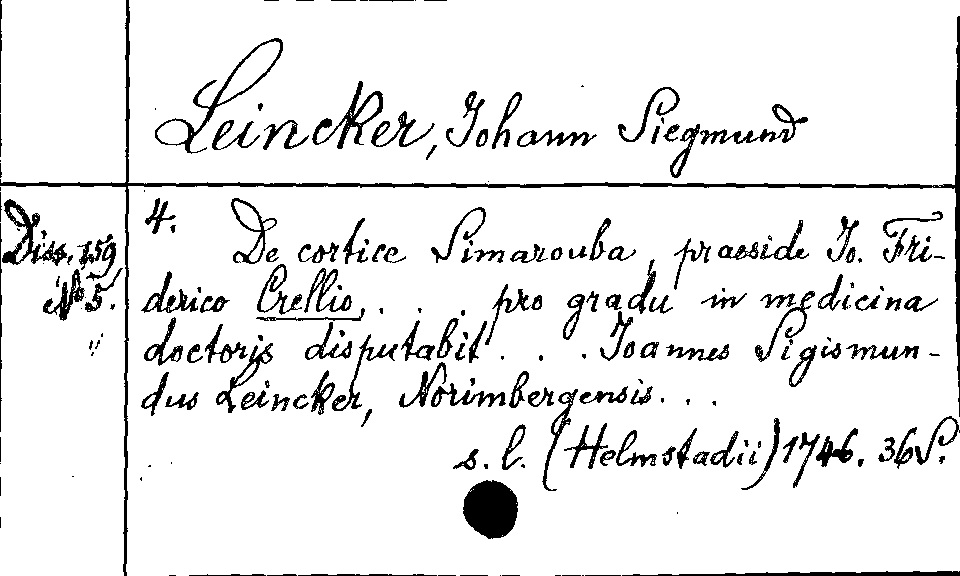 Leincker, Johann Siegmund
Diss. 159,
No 5.
4. De cortice Simarouba, praeside Jo. Fri-
derico Crellio, . . . pro gradu in medicina
doctoris disputabit . . . Joannes Sigismun-
dus Leincker, Norimbergensis . . .
s. l. (Helmstadii) 1746. 36 S.